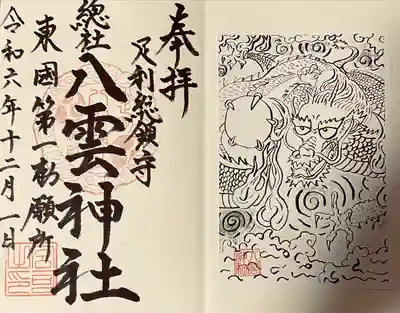 奉拝
足利総鎮守
總社
八雲神社
東國第一勅願所
令和六年十二月一日